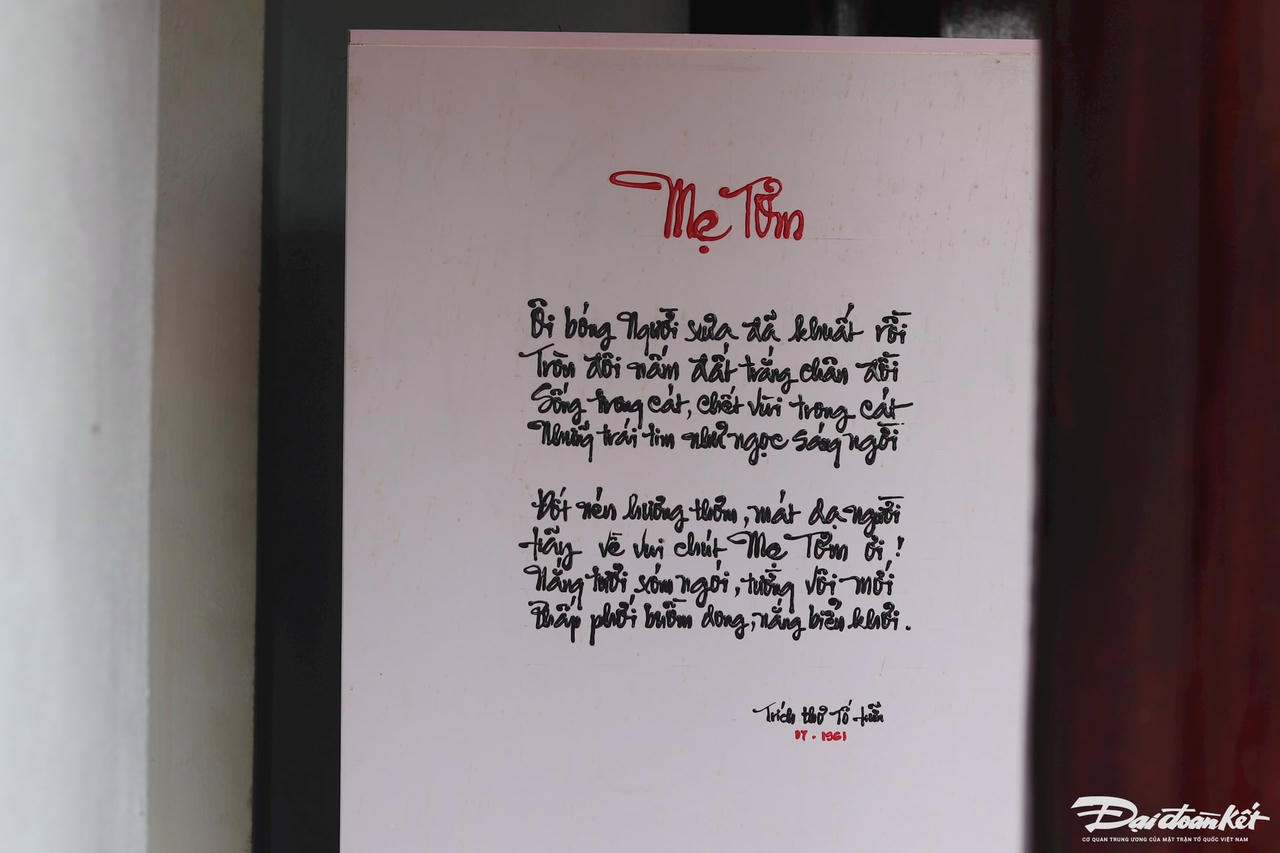 Mẹ Tơm
Ôi bóng Người xưa đã khuất rồi
Tròn đôi nấm đất trắng chân đồi
Sống trong cát, chết vùi trong cát
Những trái tim như ngọc sáng ngời
Đốt nén hương thơm, mát dạ người
Hãy về vui chút Mẹ Tơm ơi!
Nắng tươi xóm ngói, tường vôi mới
Thấp phới buồm dong, nắng biển khơi.
Trích thơ Tố Hữu
17 - 1961
Đại đoàn kết
CƠ QUAN TRUNG ƯƠNG CỦA MẶT TRẬN TỔ QUỐC VIỆT NAM